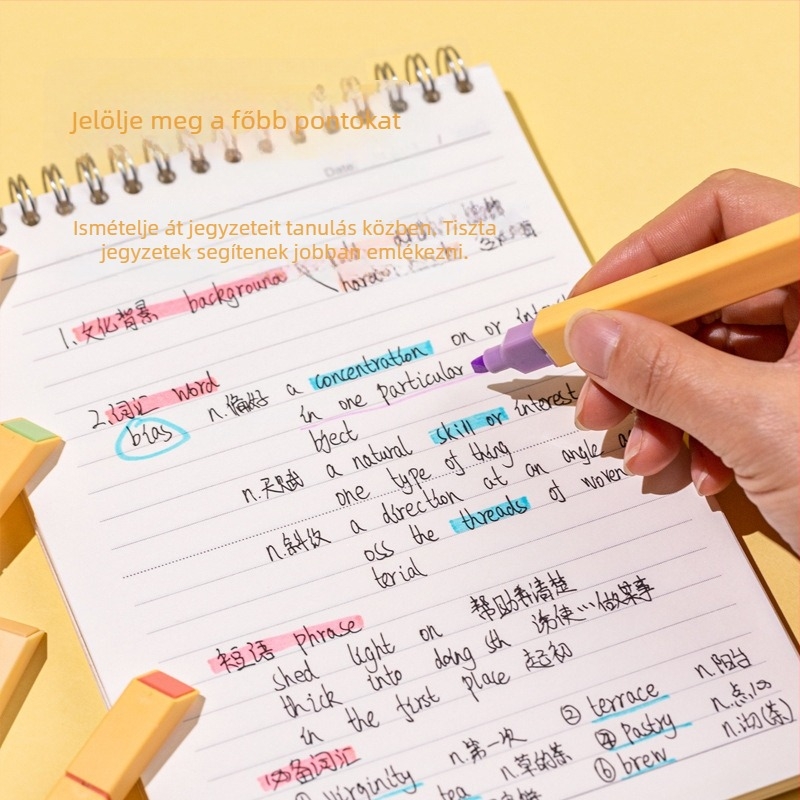 Jelölje meg a főbb pontokat
Date:
Ismételje át jegyzeteit tanulás közben. Tiszta
jegyzetek segítenek jobban emlékezni.
hard
1.文化背景 background
2.词汇 word
bias n.偏好 a concentration on or interest
in one particular
bject
n.天赋 a natural skill or interest
one type of thing
n.斜纹 a direction at an angle a
oss the threads of woven
terial
短语 phrase
shed light on 帮助弄清楚
thick into doing sth 诱使…做某事
in the first place 起初
必备词汇
① virginity n.第一次 ② terrace n.阳台
tea n.草的茶 pastry n.点心
⑥ brew n.沏(茶)